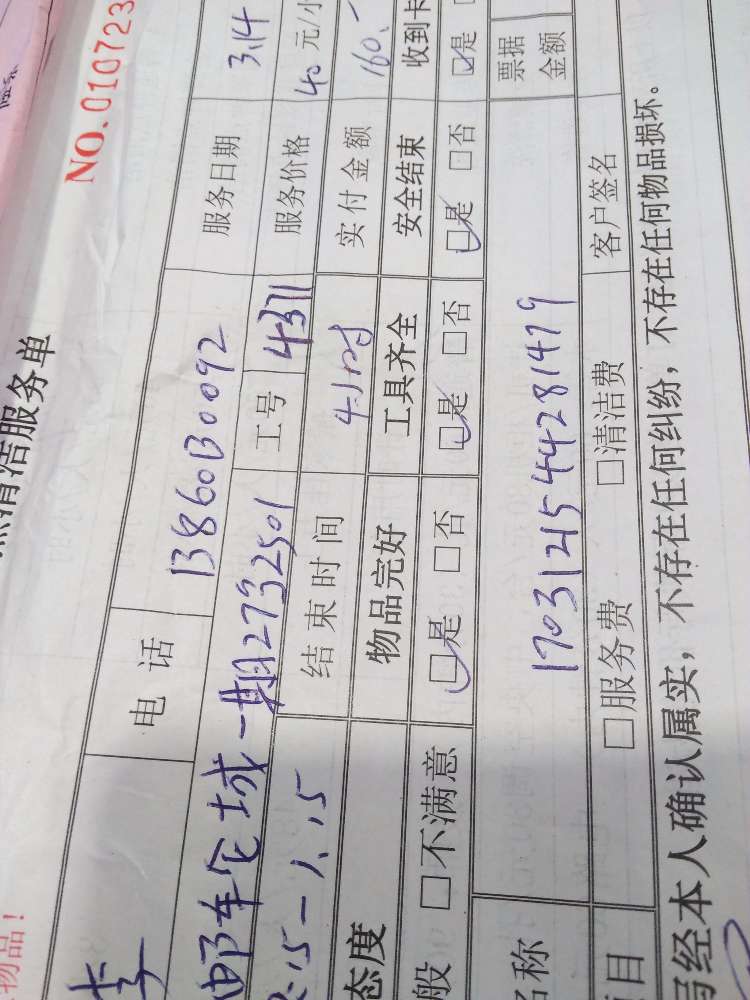 物品!
清洁服务单
NO.010723
李 电话 13860130092 服务日期 3.14
邮轮城一期2732501 工号 4371 服务价格 40 元/小
.15-1.15 结束时间 4小时 实付金额 160.-
态度 物品完好 工具齐全 安全结束 收到卡
般 □不满意 □是 □否 □是 □否 □是 □否 □是
名称 1703121544281479 票据金额
目 □服务费 □清洁费 客户签名
写经本人确认属实,不存在任何纠纷,不存在任何物品损坏。